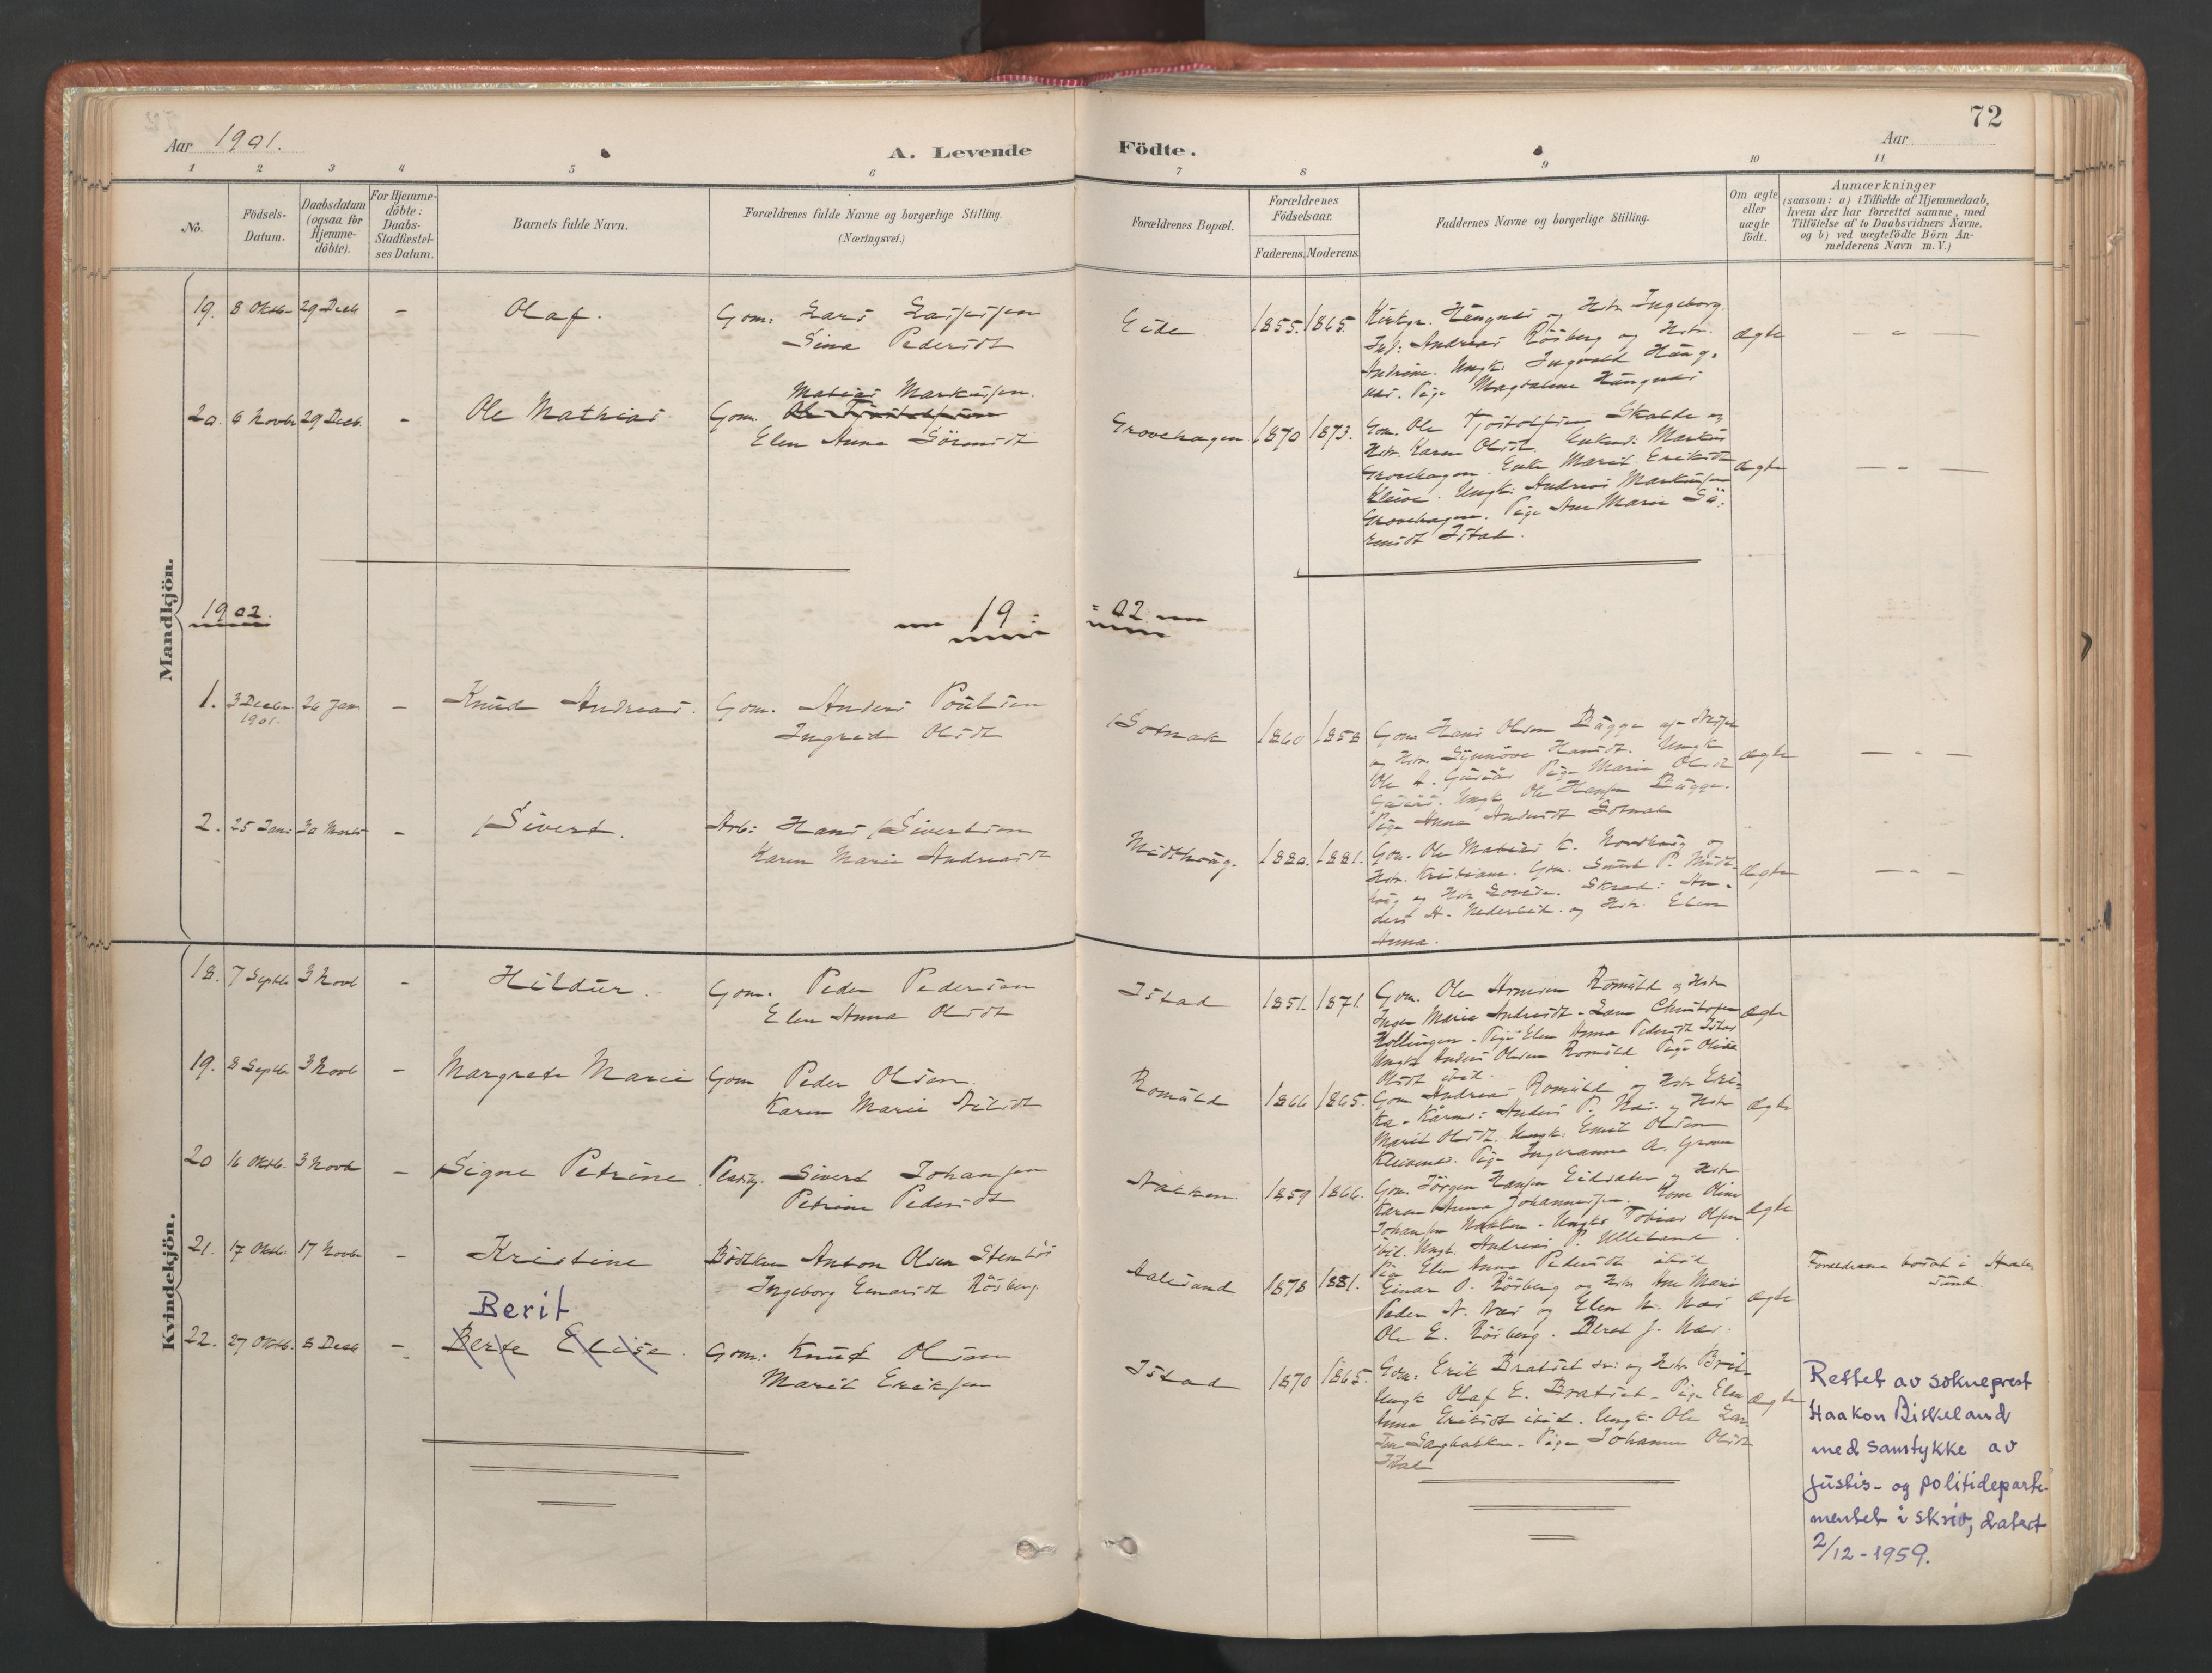 72
Aar 1901.
A. Levende Födte.
Aar
1 2 3 4 5 6 7 8 9 10 11
No.
Födsels-Datum.
Daabsdatum (ogsaa for Hjemme-döbte).
For Hjemme-döbte: Daabs-Stadfæstel-ses Datum.
Barnets fulde Navn.
Forældrenes fulde Navne og borgerlige Stilling.
(Næringsvei.)
Forældrenes Bopæl.
Forældrenes Födselsaar.
Faderens. Moderens.
Faddernes Navne og borgerlige Stilling.
Om ægte eller uægte födt.
Anmærkninger
(saasom: a) i Tilfælde af Hjemmedaab,
hvem der har forrettet samme, med
Tilföielse af to Daabsvidners Navne.
og b) ved uægtefödte Börn An-
melderens Navn m. V.)
Mandkjön.
19. 8 Oktb. 29 Decb - Olaf. Gom: Lars
Sina Pedersdt
Eide 1855. 1865.
og Hstr. Ingeborg
Andreas Rösberg og Hstr.
Andrine. Ungk. Ingvald
Pige Magdalene
ægte
20. 6 Novbr 29 Decb. - Ole Mathias Gom. Mathias Markussen.
Elen Anna
Grovehagen 1870 1873.
Gom. Ole Skalde og
Hstr. Karen Olsdt. Enkem: Markus
Grovehagen. Enke Marit Eriksdt
Kleive. Ungk: Andreas Markussen
Grovehagen. Pige Ane Marie
Istad.
ægte
1902. 19 02
1. 3 Decbr 1901. 26 Jan - Knud Andreas. Gom. Anders Poulsen
Ingrid Olsdt
Solnak 1860 1858
Gom Hans Olsen Bugge
og Hstr. Synnöve Hansdt. Ungk
Pige Marie Olsdt
Ungk Ole Hansen Bugge.
Pige Anna
ægte
2. 25 Jan: 30 Marts - Sivert. Arb: Hans Sivertsen
Karen Marie Andreasdt
Midthaug. 1880. 1881.
Gom. Ole Mathias K. Nordhaug og
Hstr. Kristiane. Gom. P.
og Hstr Lovise. Skræd: An-
ders A. og Hstr. Elen
Anna.
ægte
Kvindekjön.
18. 7 Septb 3 Novb - Hildur. Gom. Peder Pedersen
Elen Anna Olsdt
Istad 1851. 1871.
Gom. Ole Arnesen Romuld og Hstr
Inger Marie Andreasdt.
Pige Elen Anna Pedersdt Istad
Ungk Anders Olsen Romuld. Pige
Olsdt ibid.
ægte
19. 8 Septb. 3 Novb - Margrete Marie Gom Peder Olsen.
Karen Marie Nilsdt
Romuld 1866 1865.
Gom Andreas Romuld og Hstr Eri-
ka. Anders P. Næs. og Hstr
Marit Olsdt. Ungk: Olsen
Pige Ingeranna A.
ægte
20 16 Oktb. 3 Novb - Signe Petrine. Sivert Johansen
Petrine Pedersdt
Nakken. 1859 1866.
Gom. Jörgen Hansen Eidsæter og Hstr
Karen Anna Johannesen.
Johansen Nakken. Ungk: Tobias Olsen
ibid. Ungk. Andreas P.
Pige Elen Anna Pedersdt ibid
ægte
21. 17 Oktb. 17 Novbr - Kristine Bödtker Anton Olsen
Ingeborg Einarsdt Rösberg
Aalesund 1878 1881.
Einar O. Rösberg og Hstr Ane Marie
Peder N. Næs og Elen N. Næs
Ole E. Rösberg. Beret J. Næs.
ægte
Forældrene bosat i Aale-
sund.
Berit
22. 27 Oktb. 8 Decb - Berte Elise. Gom: Knud Olsen
Marit Eriksen
Istad 1870 1865.
Gom: Erik Bratset sr: og Hstr Brit-
Ungk Olaf E. Bratset. Pige Elen
Anna Eriksdt ibid. Ungk. Ole Lar-
sen Pige Johanne Olsdt
Istad
ægte
Rettet av sokneprest
Haakon Birkeland
med samtykke av
Justis- og politideparte-
mentet i skriv, datert
2/12-1959.